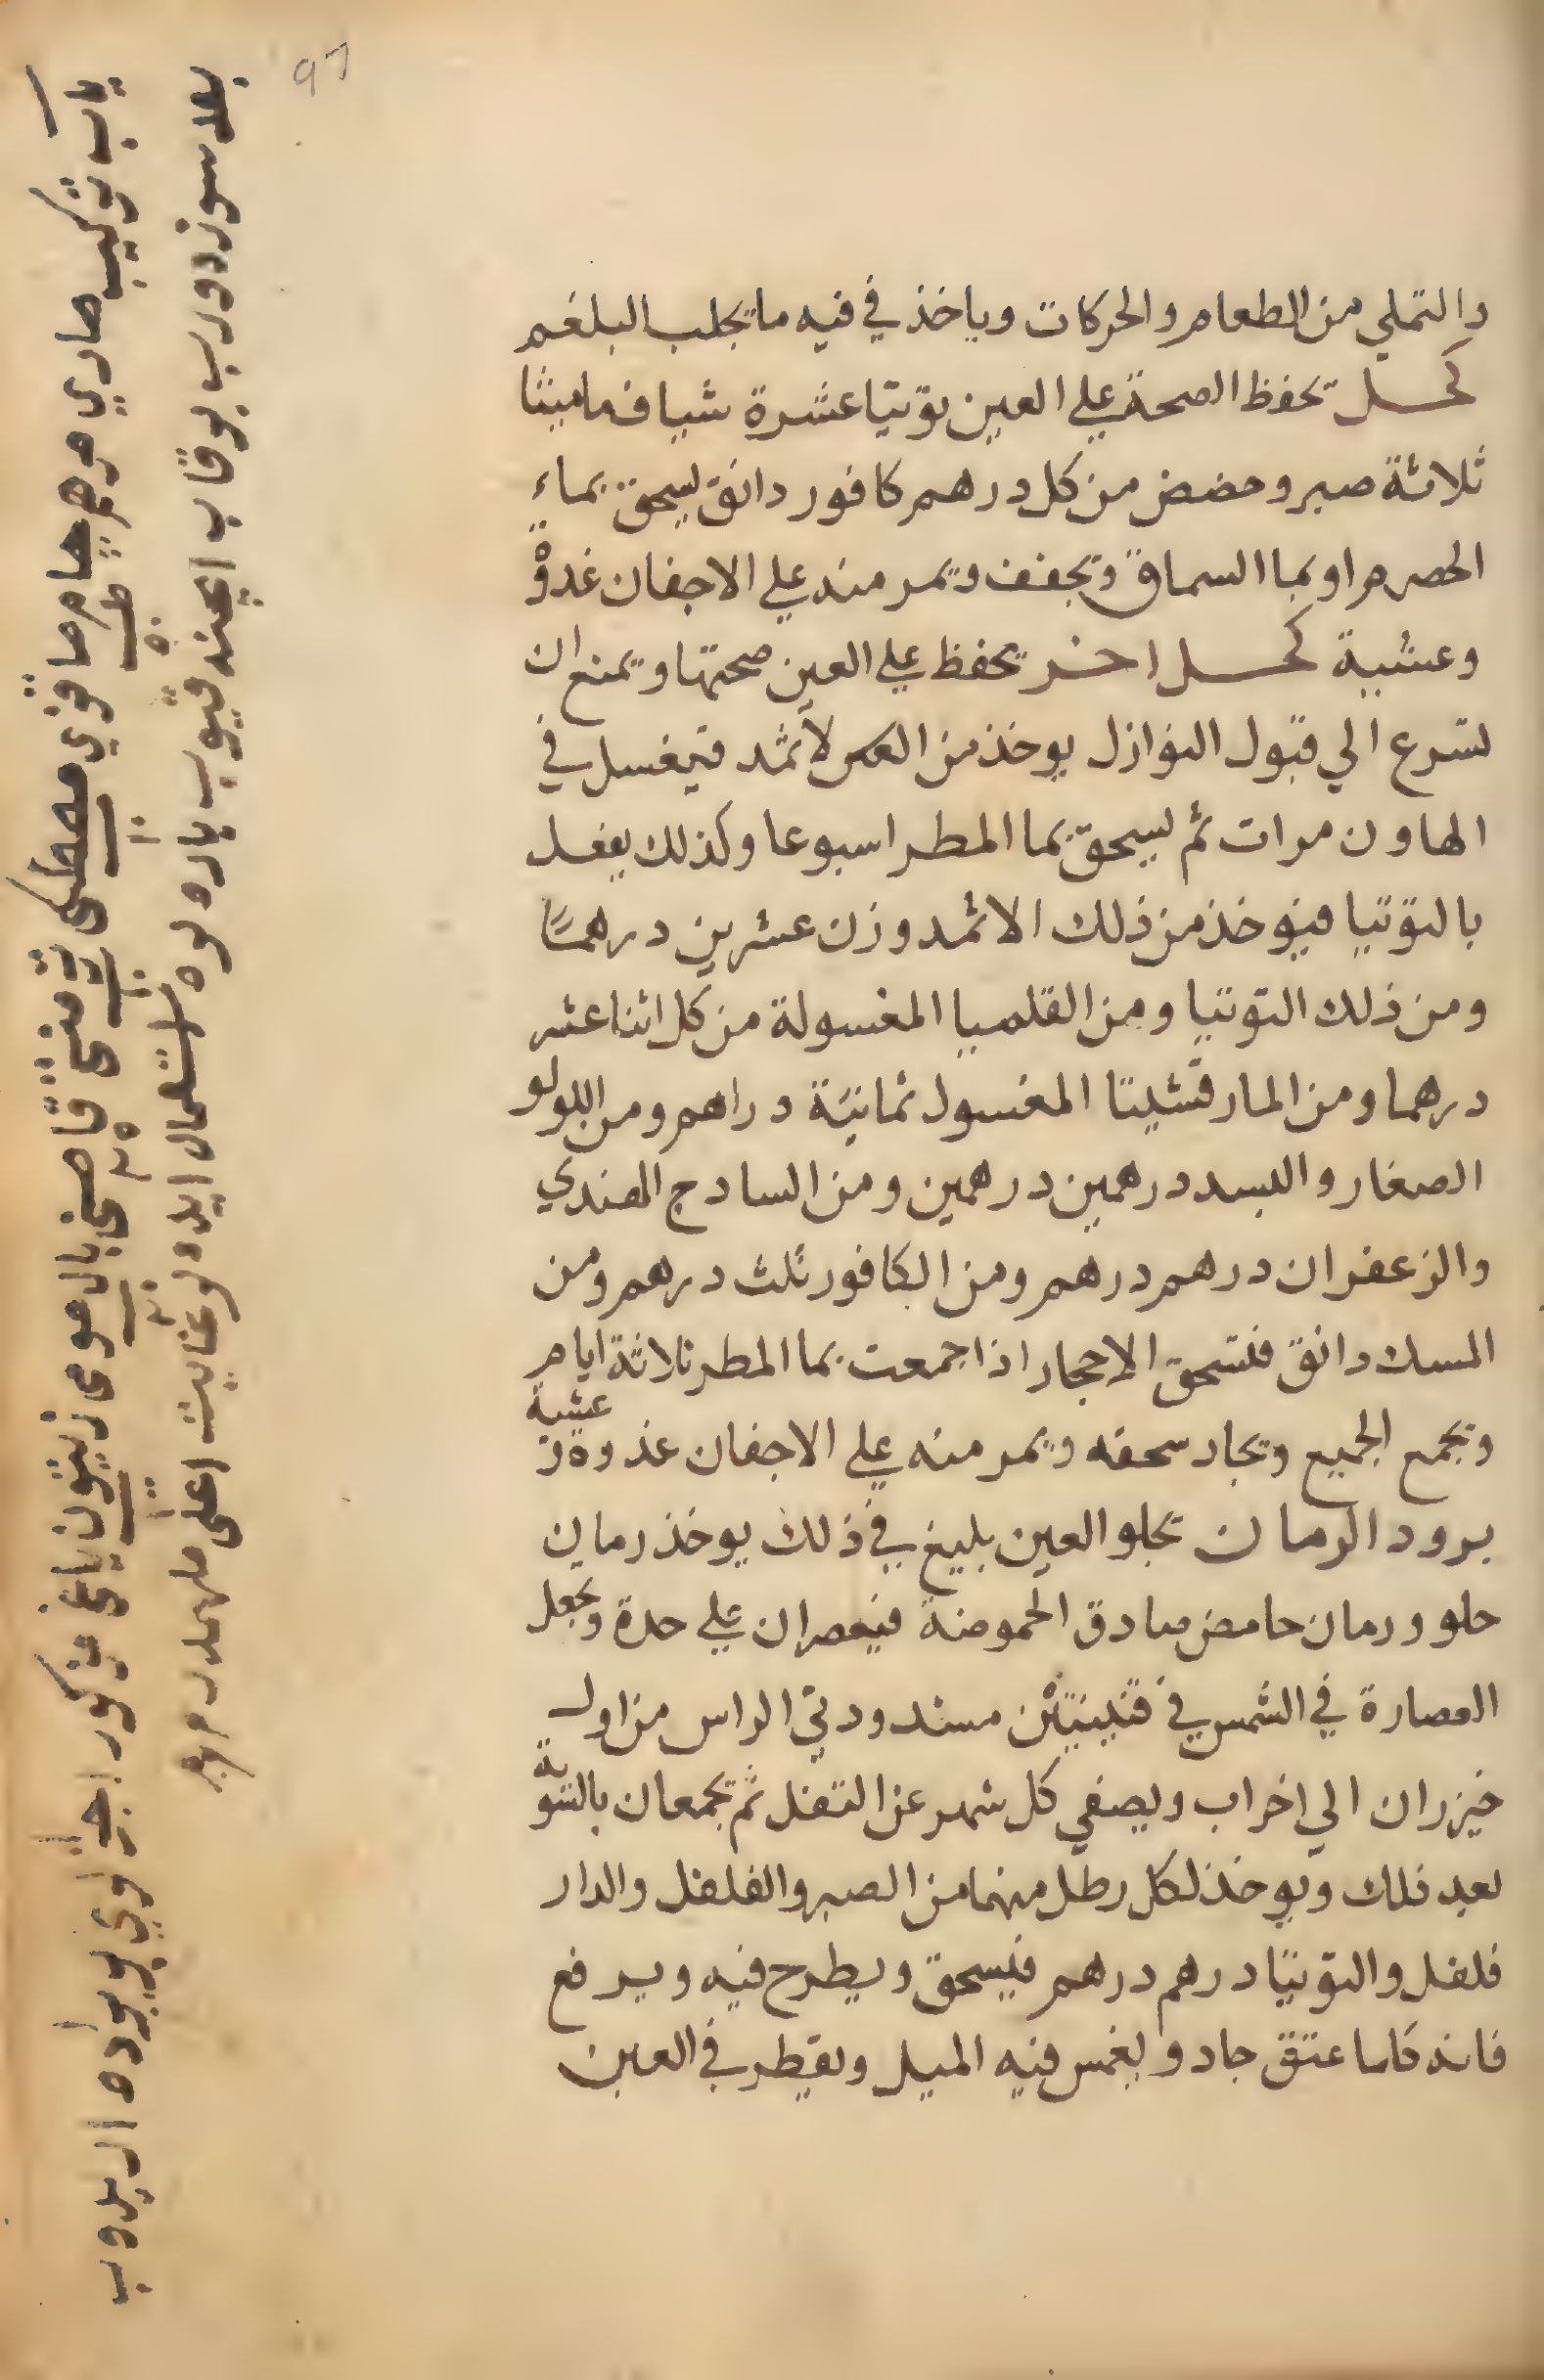 ٩٦
والتملي من الطعام والحركات وياخذ في فيه ما يجلب البلغم
كحل تحفظ الصحة علي العين توتيا عشرة شياف ماميثا
ثلاثة صبر وحضض من كل درهم كافور دانق يسحق بماء
الحصرم او بما السماق ويجفف ويمر منه علي الاجفان غدوة
وعشية كحل اخر يحفظ علي العين صحتها ويمنع ان
تسرع الي قبول النوازل يوخذ من الاثمد فيغسل في
الهاون مرات ثم يسحق بما المطر اسبوعا وكذلك يفعل
بالتوتيا فيوخذ من ذلك الاثمد وزن عشرين درهما
ومن ذلك التوتيا ومن القلميا المغسولة من كل اثنا عشر
درهما ومن المارقشيتا المغسول ثمانية دراهم ومن اللولو
الصغار والبسد درهمين درهمين ومن السادج الهندي
والزعفران درهم درهم ومن الكافور ثلث درهم ومن
المسك دانق فتسحق الاحجار اذا جمعت بما المطر ثلاثة ايام
ويجمع الجميع ويجاد سحقه ويمر منه علي الاجفان غدوة و عشية
برود الرمان يجلو العين بليغ في ذلك يوخذ رمان
حلو ورمان حامض صادق الحموضة فيعصران علي حدة ويجعل
العصارة في الشمس في قنينتين مسدودتي الراس من اول
حيزران الي اخراب ويصفي كل شهر عن الثفل ثم يجمعان بالسوية
بعد ذلك ويوخذ لكل رطل منهما من الصبر والفلفل والدار
فلفل والتوتيا درهم درهم فيسحق ويطرح فيه ويرفع
فانه كلما عتق جاد ويغمس فيه الميل ويقطر في العين
ياب تركيب صاري موم جام صاقزي مصطكى قاصني بال مومى زيتون ياغى مذكور اجزالري بر يرده اريدوب
بعده سوزدورب بو قاب ايچنه قيوب ياره لوه استعمال ايده لر غايت اعلى ملهمدر